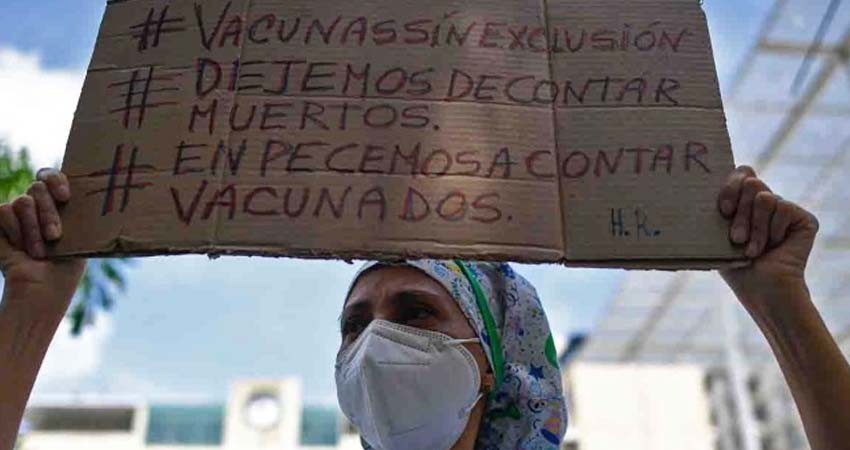 #VACUNASSÍN EXCLUSIÓN
#DEJEMOS DE CONTAR
MUERTOS.
#EN PECEMOS A CONTAR
VACUNADOS.
H.R.